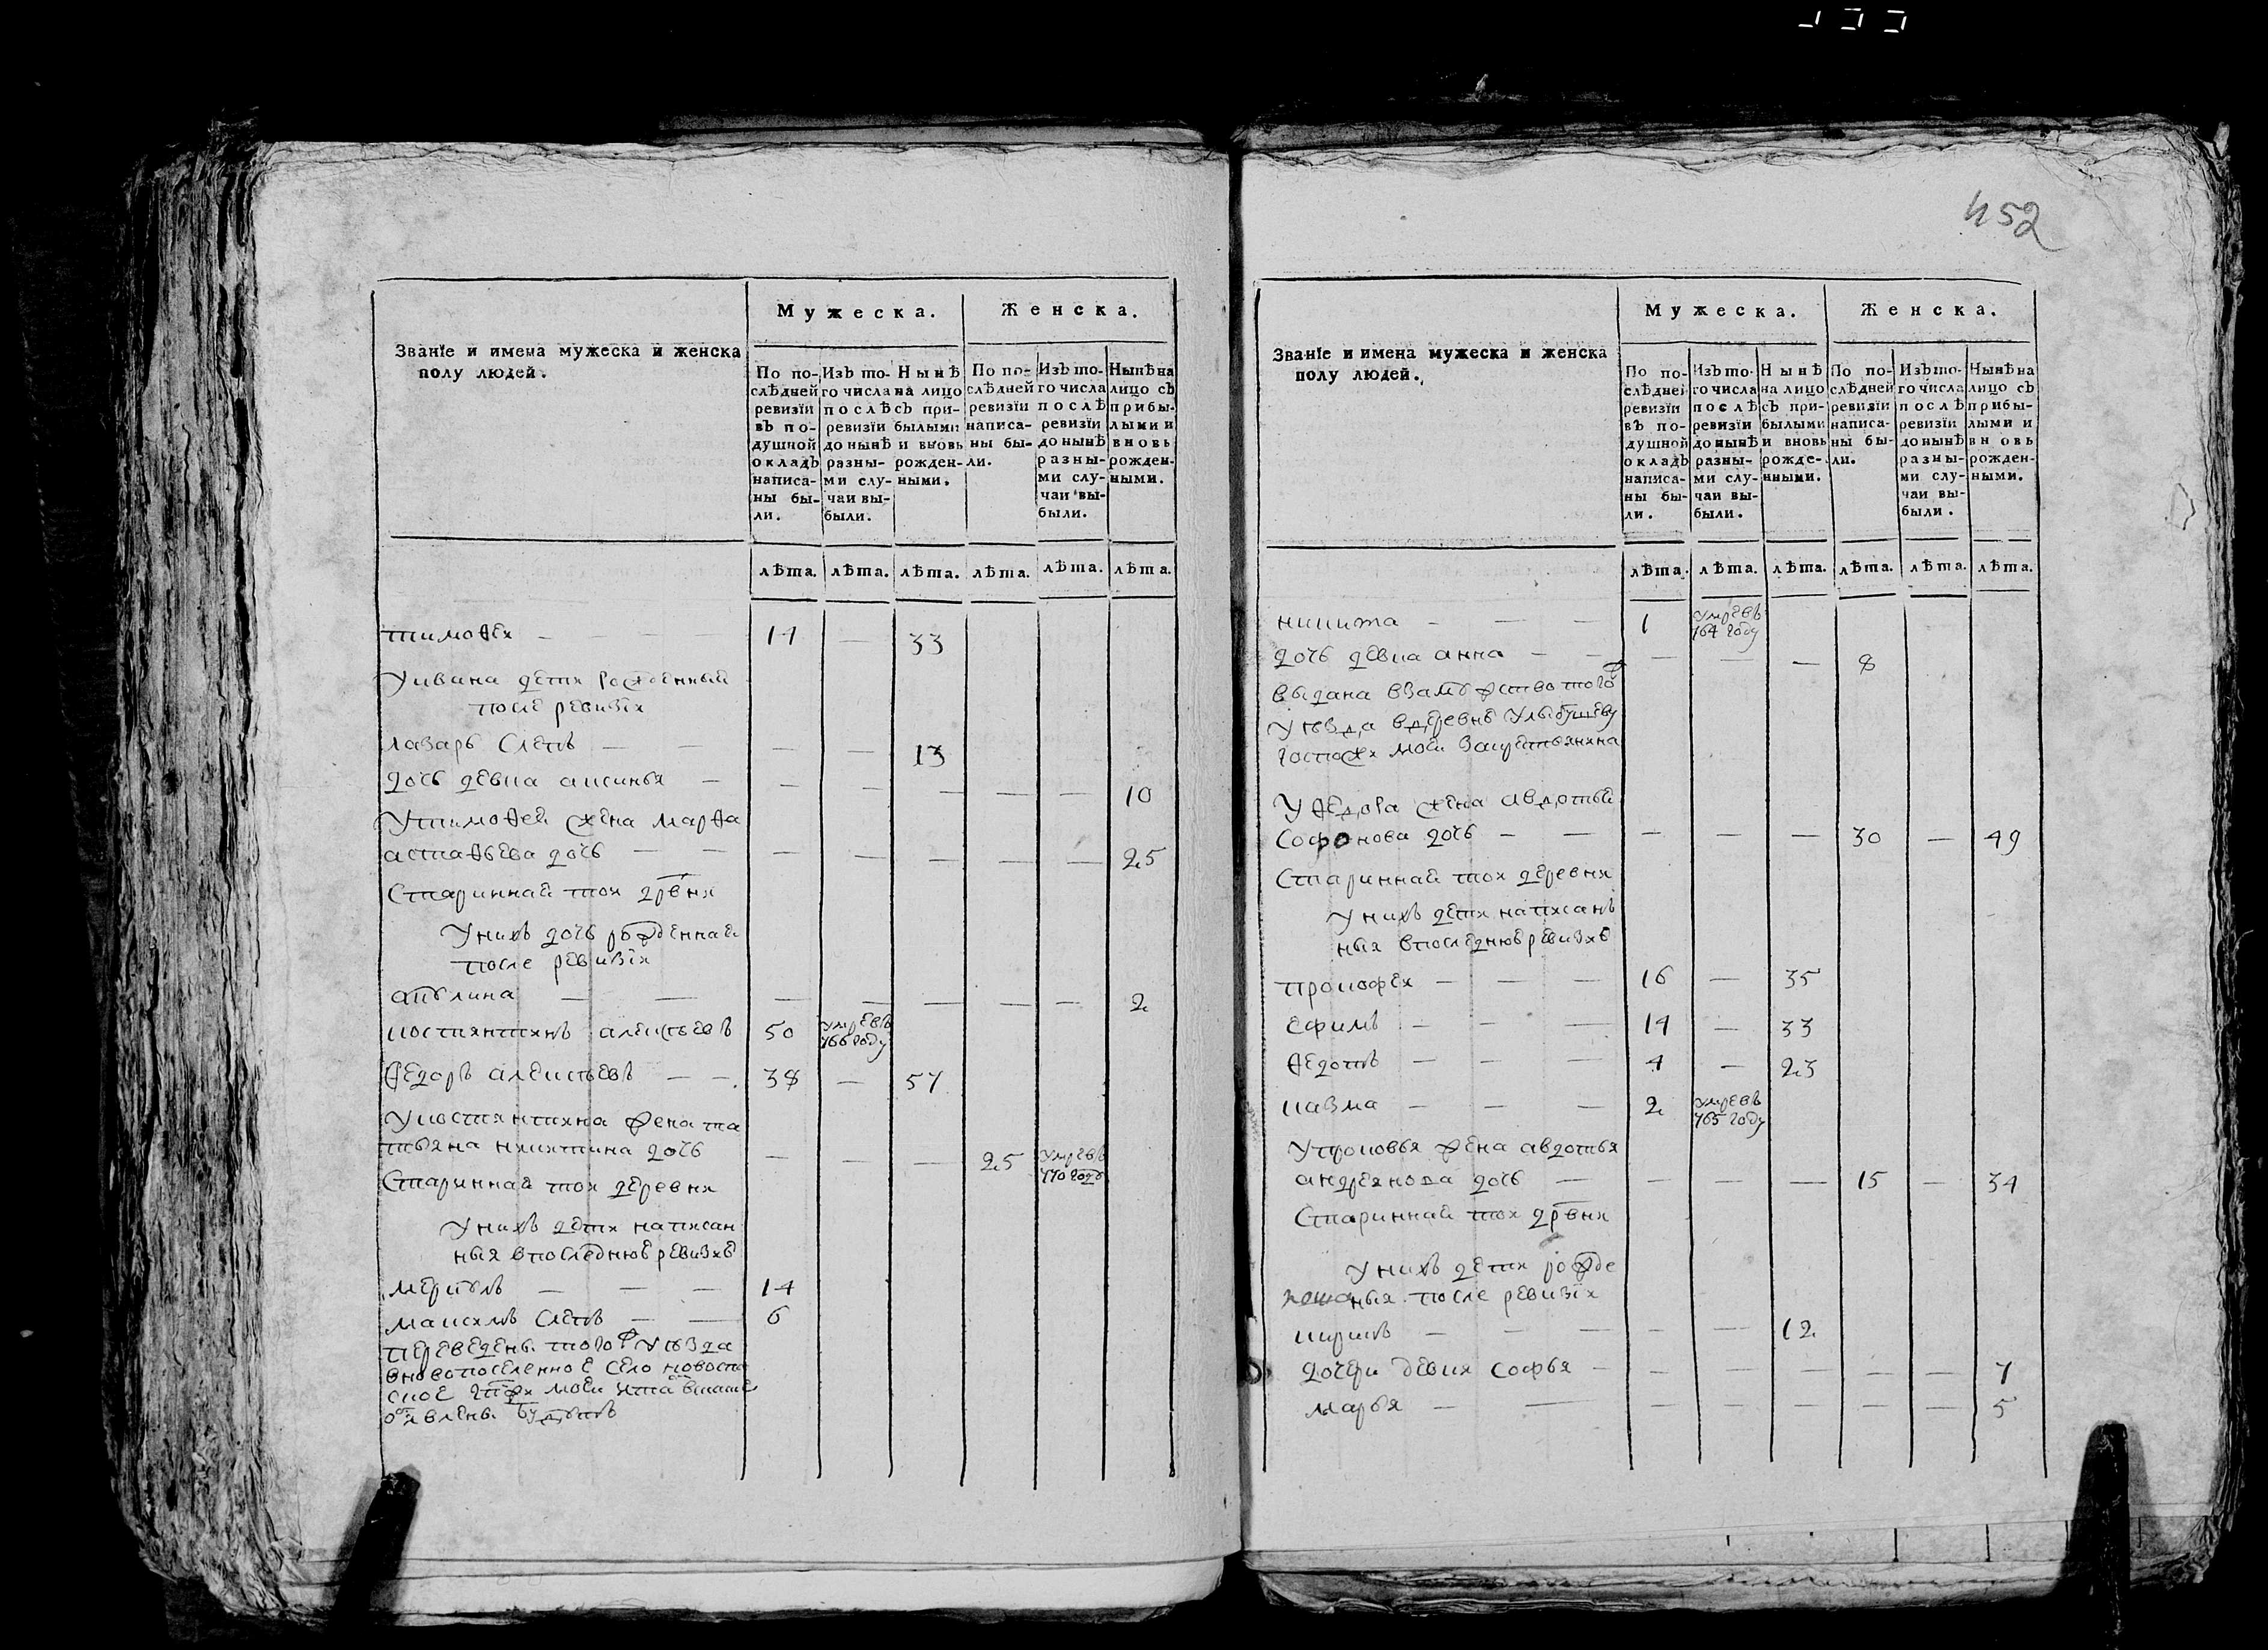 452
Званїе и имена мужеска и женска
полу людей.
Мужеска.
Женска.
По по-
слѣдней
ревизїи
въ по-
душной
окладъ
написа-
ны бы-
ли.
Изъ то-
го числа
послѣ
ревизїи
до нынѣ
разны-
ми слу-
чаи вы-
были.
Нынѣ
на лицо
съ при-
былыми
и вновь
рожден-
ными.
По по-
слѣдней
ревизїи
написа-
ны бы-
ли.
Изъ то-
го числа
послѣ
ревизїи
до нынѣ
разны-
ми слу-
чаи вы-
были.
Нынѣ на
лицо съ
прибы-
лыми и
вновь
рожден-
ными.
лѣта. лѣта. лѣта. лѣта. лѣта. лѣта.
тимоѳеи — 14 — 33
Уивана дети рожденныи
после ревизїи
лазарь 13
дочь девка аксинья — 10
Утимоѳеи жена марѳа
астаѳьева дочь — 25
Стариннаи тои дрвни
Унихъ дочь рожденнаи
после ревизїи
акулина — 2
костянтинъ алексѣевъ 50 умревъ
766 году
ѳедоръ алексѣевъ — 38 — 57
Укостянтина жена та
тьяна никитина дочь — 25 умревъ
770 году
Стариннаи тои деревни
Унихъ дети написан
ныя впоследнюю ревизию
меркулъ — 14
максимъ 6
переведены того ж уѣзда
вновопоселенное село новоспа
ское гпжи моеи
обявлены будутъ
Званїе и имена мужеска и женска
полу людей.
Мужеска.
Женска.
По по-
слѣдней
ревизїи
въ по-
душной
окладъ
написа-
ны бы-
ли.
Изъ то-
го числа
послѣ
ревизїи
до нынѣ
разны-
ми слу-
чаи вы-
были.
Нынѣ
на лицо
съ при-
былыми
и вновь
рожде-
нными.
По по-
слѣдней
ревизїи
написа-
ны бы-
ли.
Изъ то-
го числа
послѣ
ревизїи
до нынѣ
разны-
ми слу-
чаи вы-
были.
Нынѣ на
лицо съ
прибы-
лыми и
вн овь
рожден-
ными.
лѣта. лѣта. лѣта. лѣта. лѣта. лѣта.
никита — 1 умревъ
764 году
дочь девка анна — 8
выдана взамужство того ж
уѣзда вдеревню
госпожи моеи закрестьянина
Уѳедора жена авдотьи
софонова дочь — 30 — 49
Стариннаи тои деревни
Унихъ дети написанъ
ныя впоследнюю ревизию
прокофеи — 16 — 35
ефимъ — 14 — 33
ѳедотъ — 4 — 23
казма — 2 умревъ
765 году
Упрокофья жена авдотья
андреянова дочь — 15 — 34
Стариннаи тои дрвни
Унихъ дети рожде
ныя после ревизїи
12
дочери девки софья — 7
марья — 5